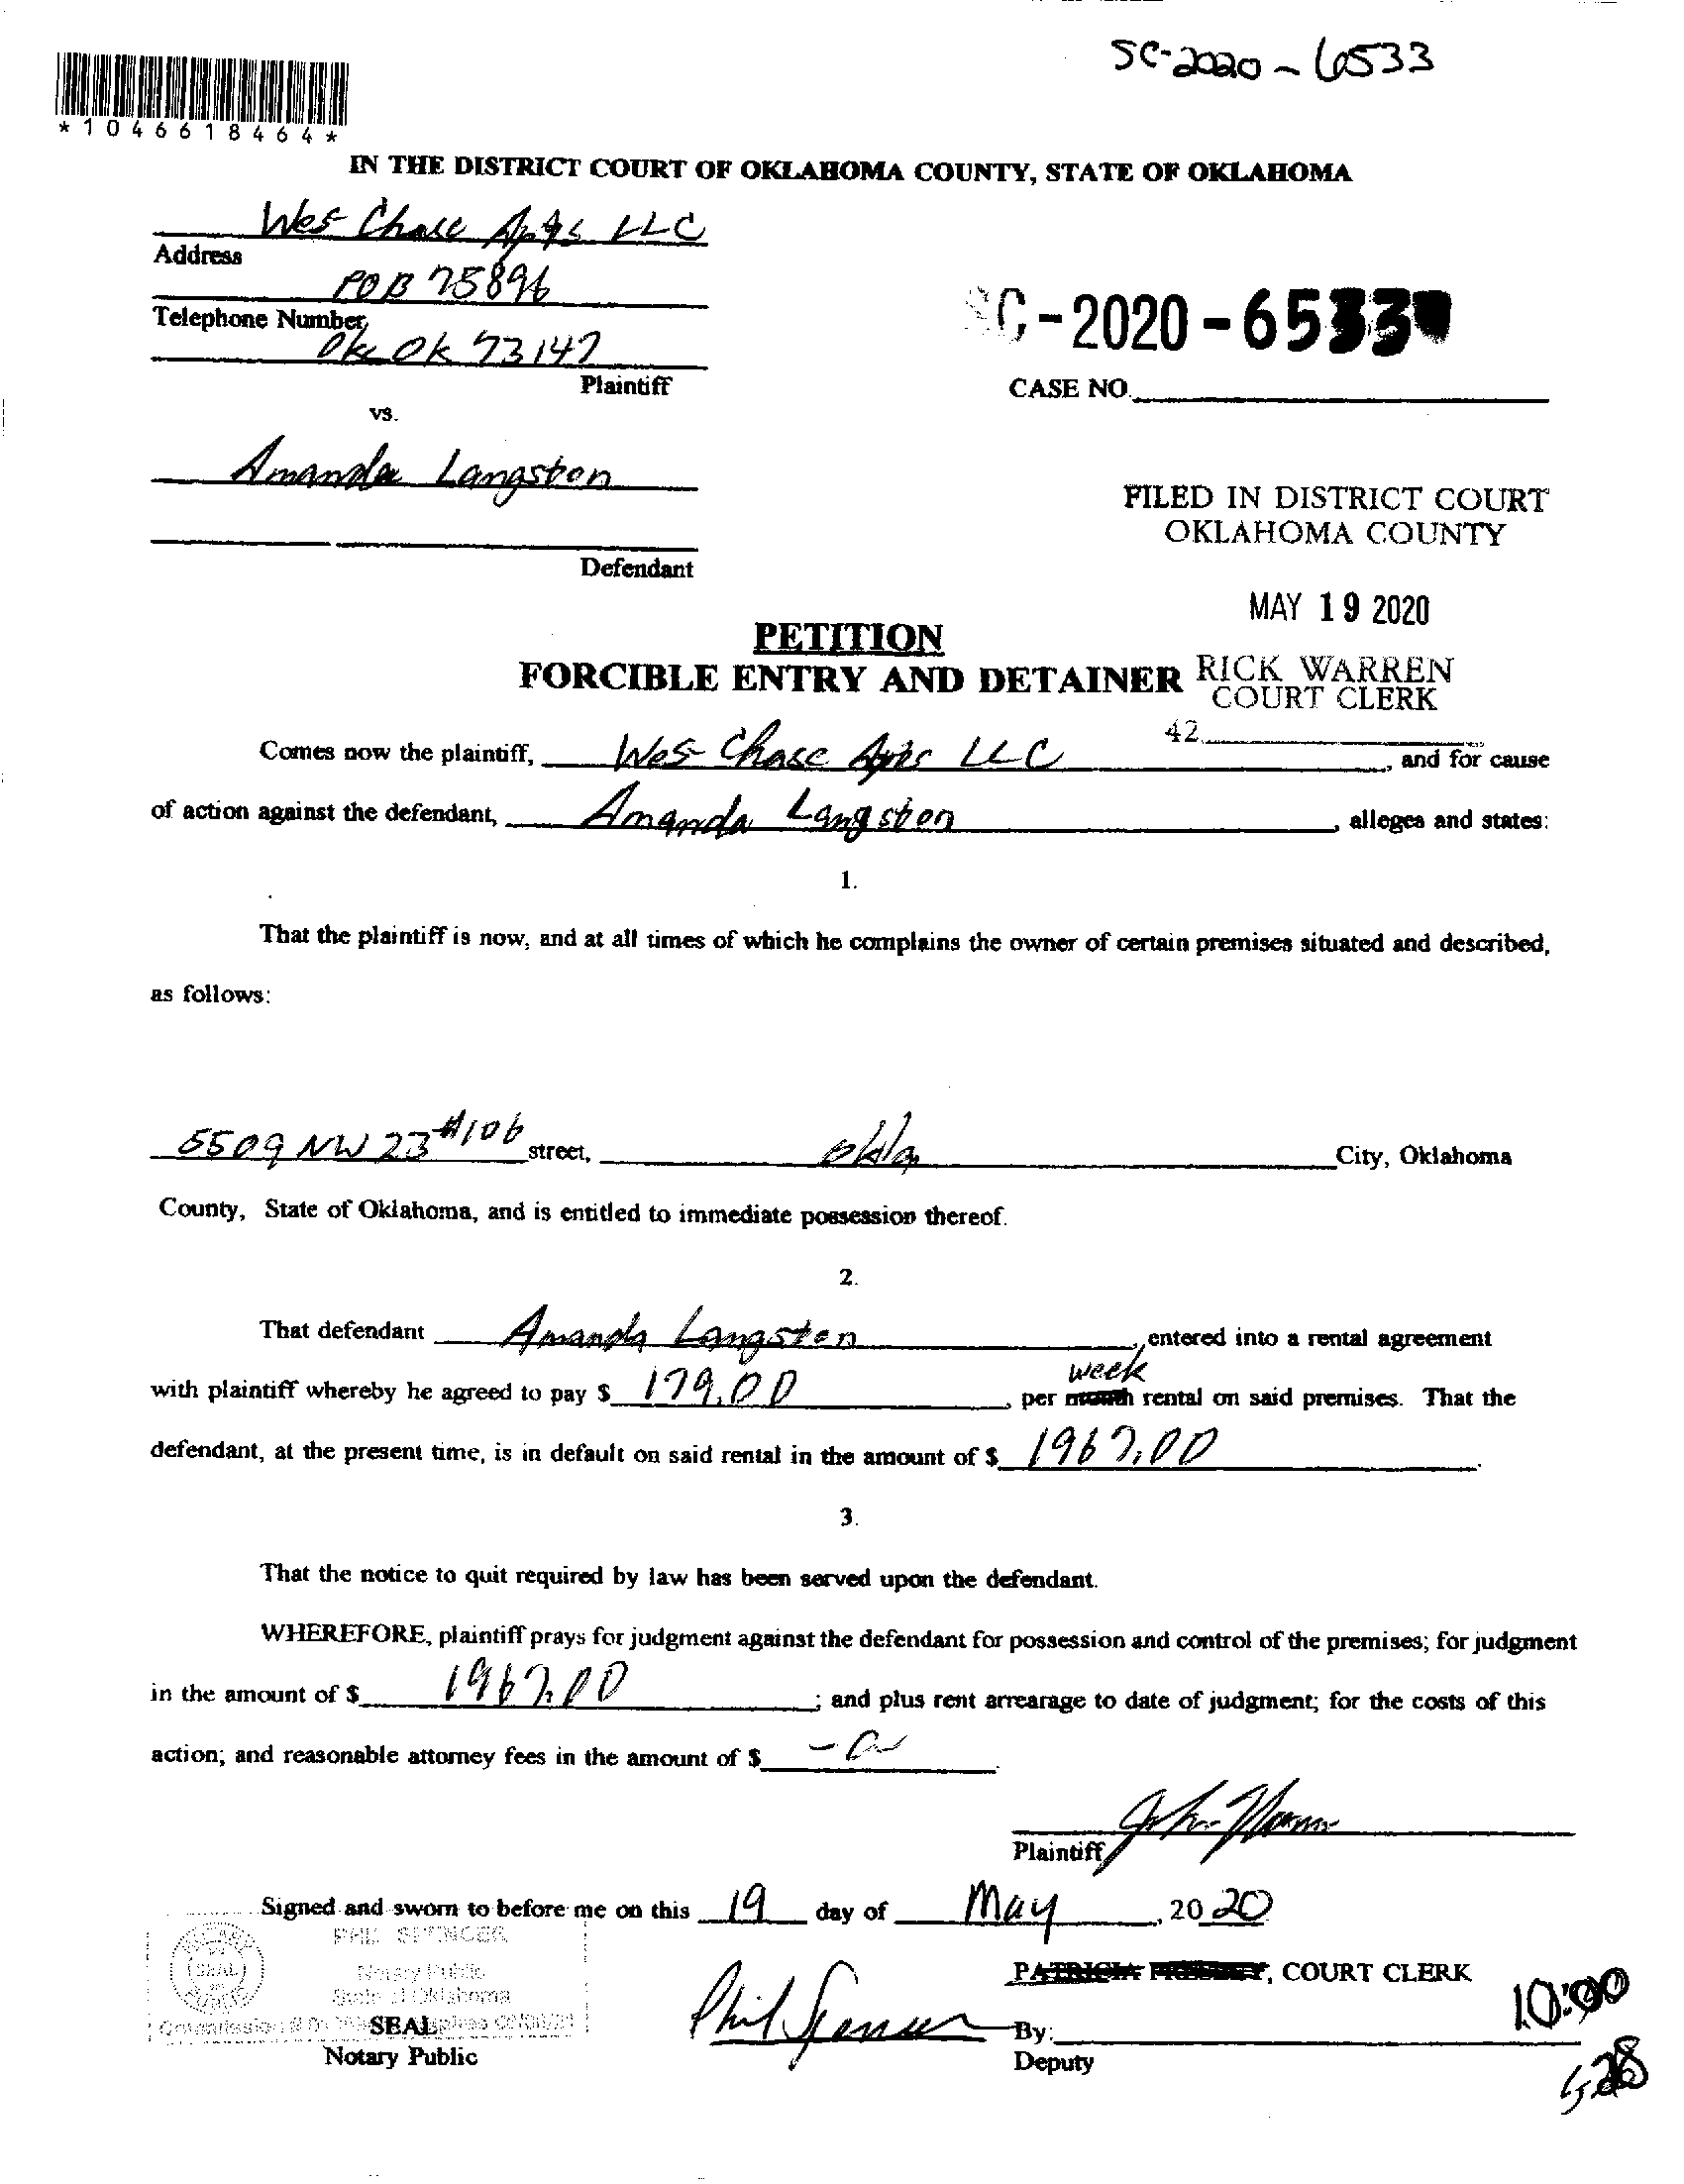 SC-2020-6533
*1046618464*
IN THE DISTRICT COURT OF OKLAHOMA COUNTY, STATE OF OKLAHOMA
Wes Chase Apts LLC
Address
POB 75896
Telephone Number
Okc Ok 73147
Plaintiff
SC-2020-6533
CASE NO.
vs.
Amanda Langston
Defendant
FILED IN DISTRICT COURT
OKLAHOMA COUNTY
MAY 19 2020
PETITION
FORCIBLE ENTRY AND DETAINER
RICK WARREN
COURT CLERK
42
Comes now the plaintiff, Wes Chase Apts LLC, and for cause
of action against the defendant, Amanda Langston, alleges and states:
1.
That the plaintiff is now, and at all times of which he complains the owner of certain premises situated and described,
as follows:
5509 NW 23 #106 street, okla City, Oklahoma
County, State of Oklahoma, and is entitled to immediate possession thereof.
2.
That defendant Amanda Langston, entered into a rental agreement
week
with plaintiff whereby he agreed to pay $ 179.00, per month rental on said premises. That the
defendant, at the present time, is in default on said rental in the amount of $ 1967.00.
3.
That the notice to quit required by law has been served upon the defendant.
WHEREFORE, plaintiff prays for judgment against the defendant for possession and control of the premises; for judgment
in the amount of $ 1967.00; and plus rent arrearage to date of judgment; for the costs of this
action; and reasonable attorney fees in the amount of $
Plaintiff
Signed and sworn to before me on this 19 day of May, 2020
PHIL SPENCER
Notary Public
State of Oklahoma
SEAL
Notary Public
Phil Spencer
PATRICIA, COURT CLERK
By:
Deputy
10:00
5-28